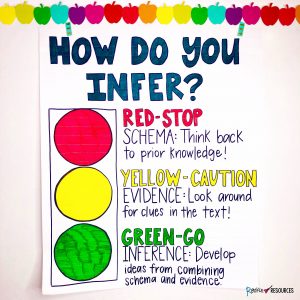 HOW DO YOU
INFER?
RED-STOP
SCHEMA: Think back
to prior knowledge!
YELLOW-CAUTION
EVIDENCE: Look around
for clues in the text!
GREEN-GO
INFERENCE: Develop
ideas from combining
schema and evidence.
RESOURCES